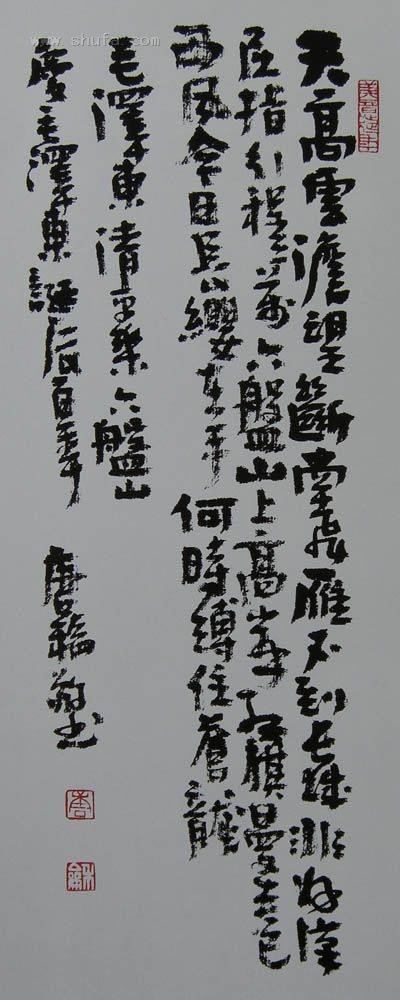 www.shufa.com
天高雲澹望斷南飛雁不到長城非好漢
屈指行程二萬六盤山上高峰紅旗漫卷
西風今日長纓在手何時縛住蒼龍
毛澤東清平樂六盤山
慶毛澤東誕辰百年 唐敬书